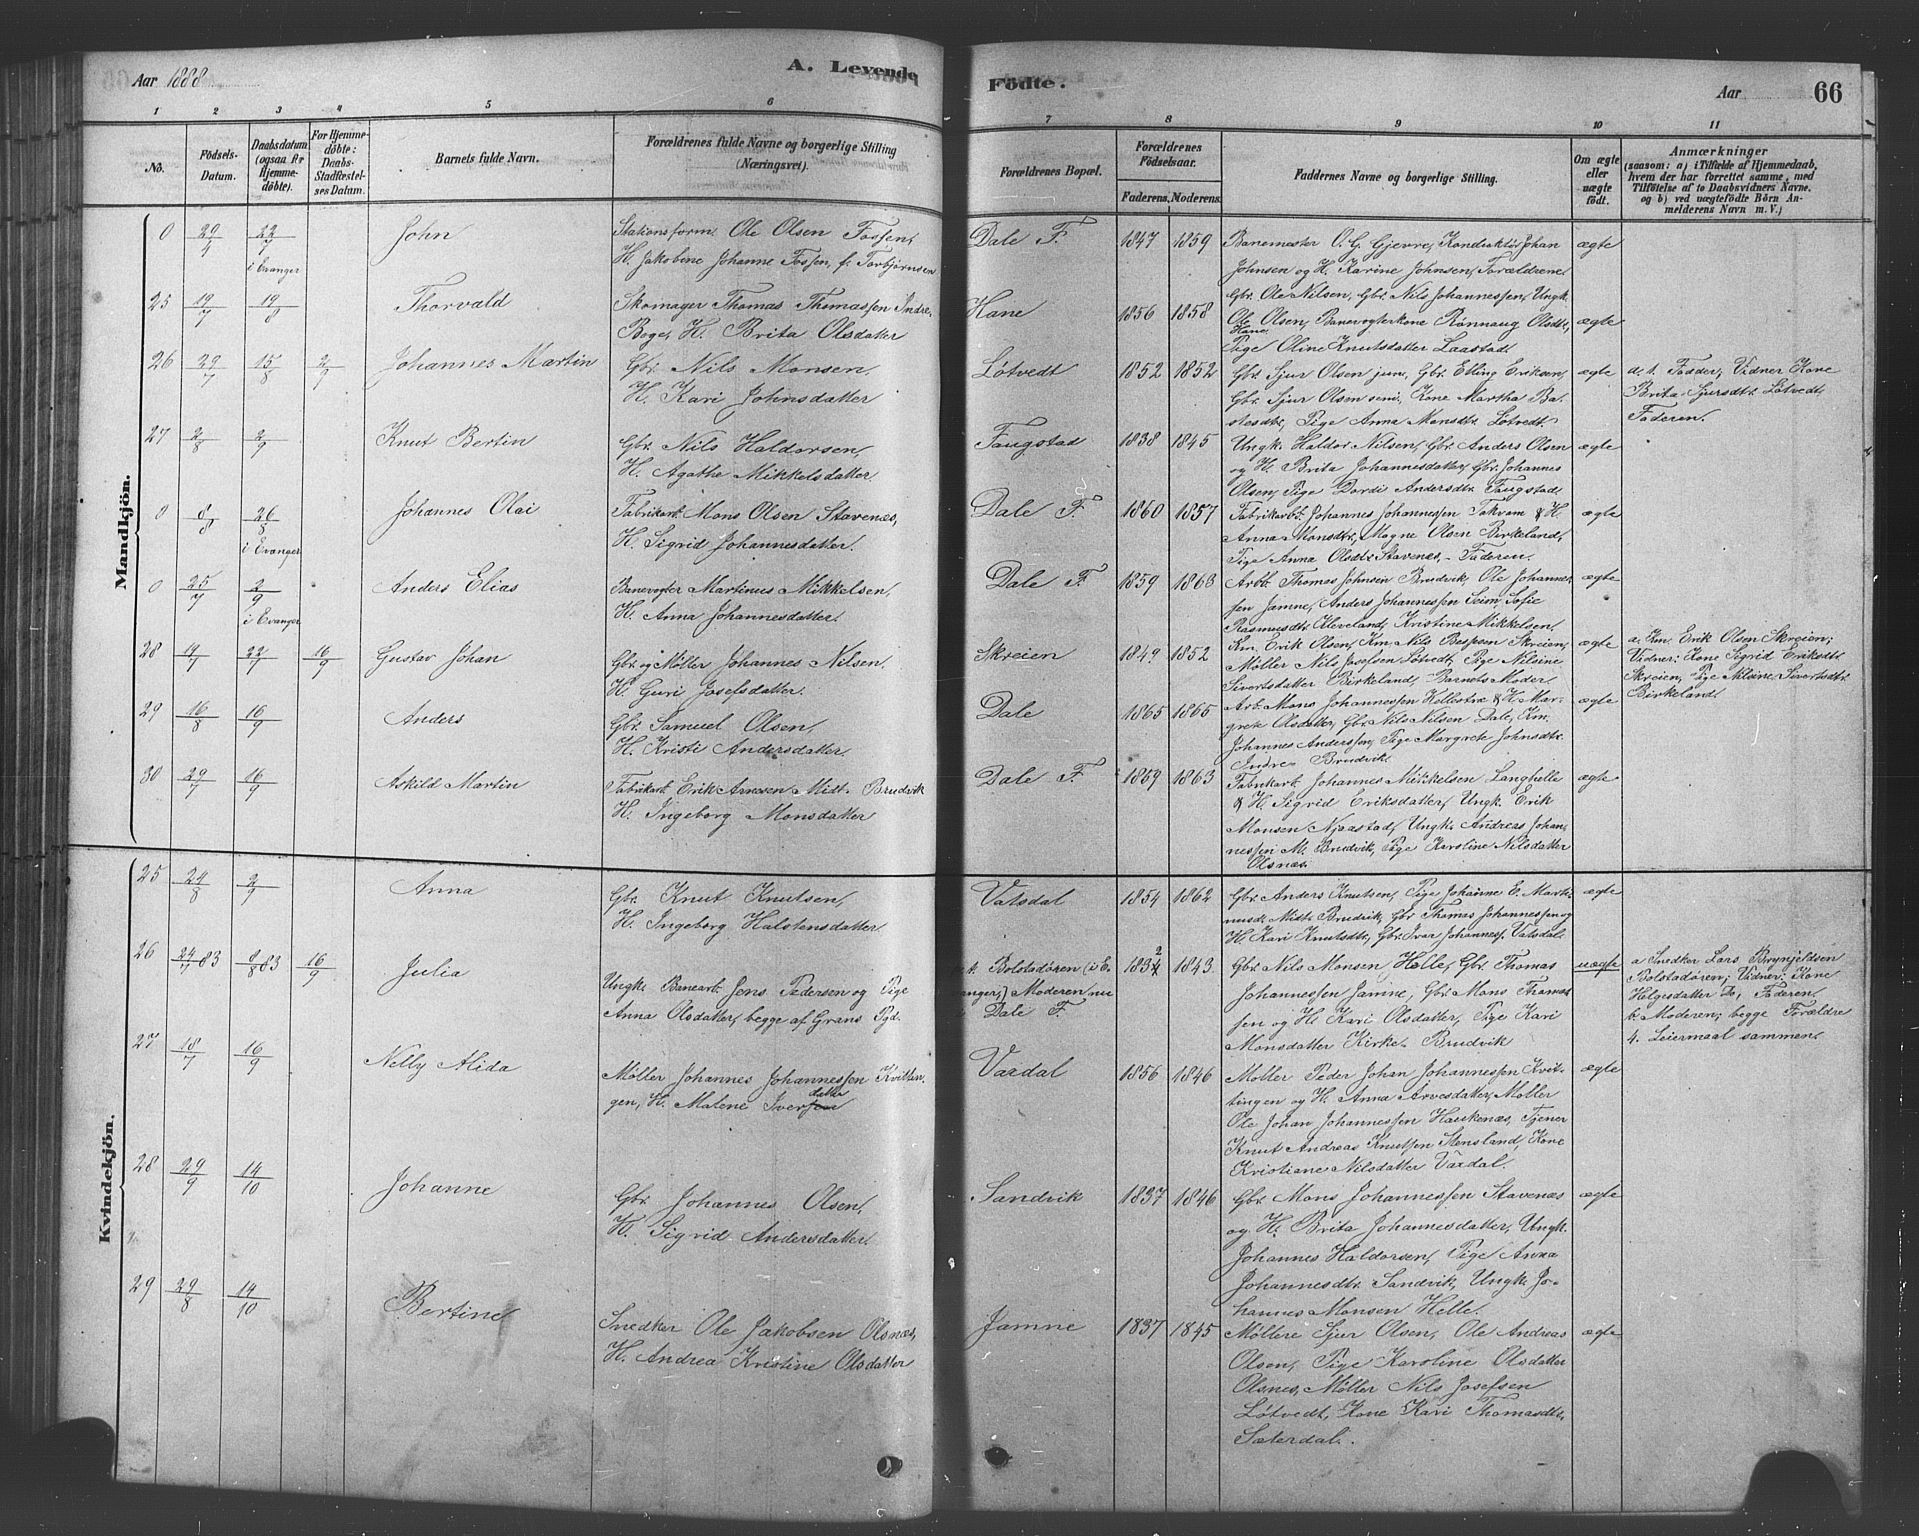 Aar 1888
A. Levende
Födte.
Aar
66
1 2 3 4 5 6 7 8 9 10 11
No.
Födsels-
Datum.
Daabsdatum
(ogsaa for
Hjemme-
döbte).
For Hjemme-
döbte:
Daabs-
Stadfæstel-
ses Datum.
Barnets fulde Navn.
Forældrenes fulde Navne og borgerlige Stilling
(Næringsvei).
Forældrenes Bopæl.
Forældrenes
Födselsaar.
Faderens. Moderens.
Faddernes Navne og borgerlige Stilling.
Om ægte
eller
uægte
födt.
Anmærkninger
(saasom: a) i Tilfælde af Hjemmedaab,
hvem der har forrettet samme, med
Tilföielse af to Daabsvidners Navne,
og b) ved uægtefödte Börn An-
melderens Navn m. V.)
Mandkjön.
0 29/4 22/7 i Evanger
John
Stationsform. Ole Olsen Fossen,
H. Jakobine Johanne Fossen, f. Torbjörnsen
Dale F. 1847 1859
Banemester O. G. Gjerre, Konduktör Johan
Johnsen og H. Karine Johnsen, Forældrene
ægte
25 19/7 19/8
Thorvald
Skomager Thomas Thomassen Indre-
Boge, H. Brita Olsdatter
Hane 1856 1858
Gbr. Ole Nilsen, Gbr. Nils Johannessen, Ungk.
Ole Olsen, Banevogterkone Rönnaug Olsdtr.
Hane,
Pige Oline Knutsdatter Laastad.
ægte
26 29/7 15/8 2/9
Johannes Martin
Gbr. Nils Monsen,
H. Kari Johnsdatter
Lötvedt 1852 1852
Gbr. Sjur Olsen jun., Gbr. Elling Eriksen,
Gbr. Sjur Olsen sen., Kone Martha Ba-
stesdtr., Pige Anna Monsdtr. Lötvedt.
ægte
d. 1. Fadder, Vidner Kone
Brita Sjursdtr. Lötvedt,
Faderen.
27 2/8 2/9
Knut Bertin
Gbr. Nils Haldorsen,
H. Agathe Mikkelsdatter
Faugstad 1838 1845
Ungk. Haldor Nilsen, Gbr. Anders Olsen
og H. Brita Johannesdatter, Gbr. Johannes
Olsen, Pige Dordi Andersdtr. Faugstad.
ægte
0 8/8 26/8 i Evanger
Johannes Olai
Fabrikarb. Mons Olsen Stavenæs,
H. Sigrid Johannesdatter.
Dale F. 1860 1857
Fabrikarb. Johannes Johannessen Takvam & H.
Anna Monsdtr., Magne Olsen Birkeland,
Pige Anna Olsdtr. Stavenæs, - Faderen.
ægte
0 25/7 2/9 i Evanger
Anders Elias
Banevogter Martinus Mikkelsen,
H. Anna Johannesdatter.
Dale F. 1859 1868
Arbb. Thomas Johnsen Brudvik, Ole Johannes-
sen Jamne, Anders Johannessen Seim, Sofie
Rasmusdtr. Kleveland, Kristine Mikkelsen.
ægte
28 19/7 22/7 16/9
Gustav Johan
Gbr. og Möller Johannes Nilsen.
H. Guri Josefsdatter.
Skreien 1849 1852
Km. Erik Olsen, Km. Nils Bessesen Skreien,
Möller Nils Josefsen Lötvedt, Pige Nilsine
Sivertsdatter Birkeland, Barnets Moder.
ægte
a. Km. Erik Olsen Skreien;
Vidner: Kone Sigrid Eriksdtr.
Skreien, Pige Nilsine Sivertsdtr.
Birkeland.
29 16/8 16/9
Anders
Gbr. Samuel Olsen,
H. Kristi Andersdatter.
Dale 1865 1865
Arb. Mons Johannessen Hellestræ & H. Mar-
grete Olsdatter, Gbr. Nils Nilsen Dale, Km.
Johannes Anderssen, Pige Margrete Johnsdtr.
Indre Brudvik
ægte
30 29/7 16/9
Askild Martin
Fabrikarb. Erik Arnesen Midt-Brudvik
H. Ingeborg Monsdatter
Dale F. 1859 1863
Fabrikarb. Johannes Mikkelsen Langhelle
& H. Sigrid Eriksdatter, Ungk. Erik
Monsen Njaastad, Ungk. Andreas Johan-
nessen M. Brudvik, Pige Karoline Nilsdatter
Olsnæs
ægte
Kvindekjön.
25 24/8 2/9
Anna
Gbr. Knut Knutsen,
H. Ingeborg Halstensdatter
Vatsdal 1854 1862
Gbr. Anders Knutsen, Pige Johanne E. Marti-
nusd. Midt-Brudvik, Gbr. Thomas Johannessen og
H. Kari Knutsdtr., Gbr. Ivar Johanness. Vatsdal.
ægte
26 24/7 83 8/8 83 16/9
Julia
Ungk. Banearb. Jens Pedersen og Pige
Anna Olsdatter, begge af Grans Pgd.
Bolstadören (i E-
vanger,) Moderen nu
i Dale F.
1832 1843
Gbr. Nils Monsen Helle, Gbr. Thomas
Johannessen Jamne, Gbr. Mons Thomas-
sen og H. Kari Olsdatter, Pige Kari
Monsdatter Kirke-Brudvik
uægte
a Snedker Lars Brynjeldsen
Bolstadören; Vidner: Kone
Helgesdatter Do, Faderen.
b. Moderen; begge Forældre
4. Leiermaal sammen.
27 18/7 16/9
Nelly Alida
Möller Johannes Johannessen Kvittin-
gen, H. Malene Iversdatter
Vaxdal 1856 1846
Möller Peder Johan Johannessen Kvit-
tingen og H. Anna Arvesdatter, Möller
Ole Johan Johannessen Haukenæs, Tjener
Knut Andreas Knutsen Stensland, Kone
Kristiane Nilsdatter Vaxdal.
ægte
28 29/9 14/10
Johanne
Gbr. Johannes Olsen,
H. Sigrid Andersdatter.
Sandvik 1837 1846
Gbr. Mons Johannessen Stavenæs
og H. Brita Johannesdatter, Ungk.
Johannes Haldorsen, Pige Anna
Johannesdtr. Sandvik, Ungk. Jo-
hannes Monsen Helle.
ægte
29 29/8 14/10
Bertine
Snedker Ole Jakobsen Olsnæs,
H. Andrea Kristine Olsdatter
Jamne 1837 1845
Möllere Sjur Olsen, Ole Andreas
Olsen, Pige Karoline Olsdatter
Olsnes, Möller Nils Josefsen
Lötvedt, Kone Kari Thomasdtr.
Sæterdal.
ægte